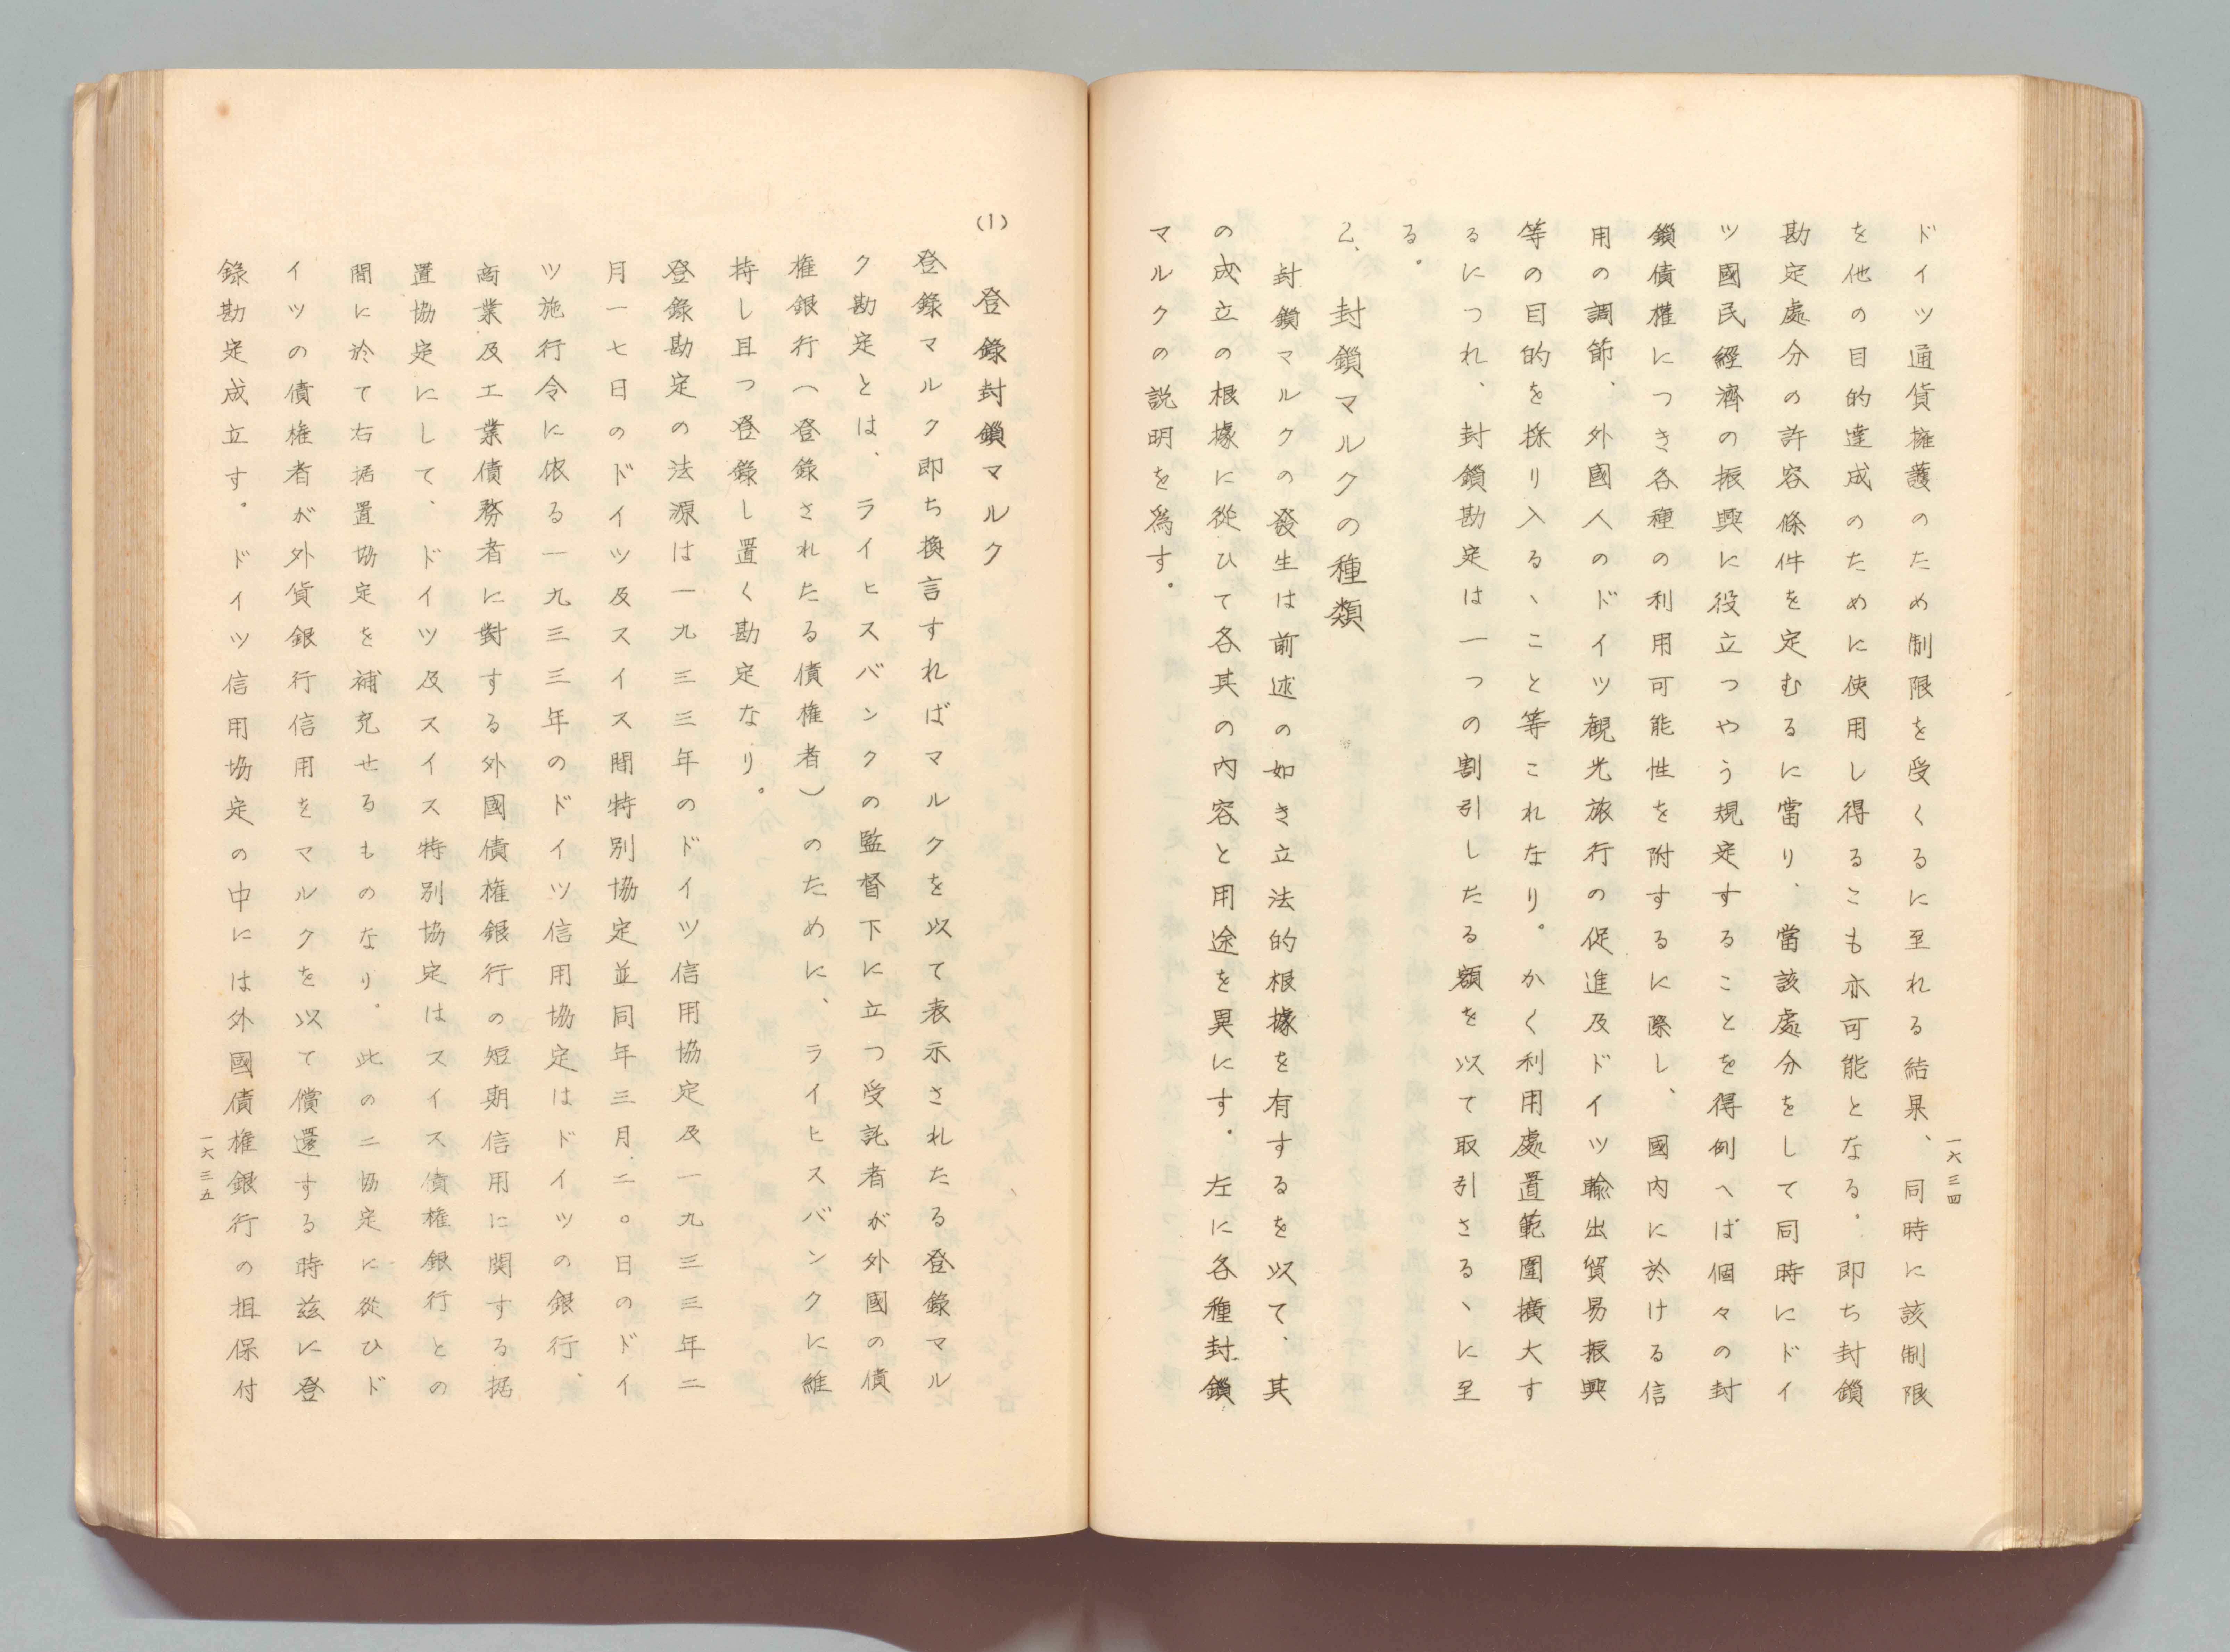 ドイツ通貨擁護のため制限を受くるに至れる結果、同時に該制限
を他の目的達成のために使用し得ることも亦可能となる。即ち封鎖
勘定處分の許容條件を定むるに當り、當該處分をして同時にドイ
ツ國民經濟の振興に役立つやう規定することを得例へば個々の封
鎖債權につき各種の利用可能性を附するに際し、國内に於ける信
用の調節、外國人のドイツ観光旅行の促進及ドイツ輸出貿易振興
等の目的を採り入るゝこと等これなり。かく利用處置範圍擴大す
るにつれ、封鎖勘定は一つの割引したる額を以て取引さるゝに至
る。
2、封鎖マルクの種類
封鎖マルクの發生は前述の如き立法的根據を有するを以て、其
の成立の根據に從ひて各其の内容と用途を異にす。左に各種封鎖
マルクの説明を爲す。
一六三四
(1) 登錄封鎖マルク
登錄マルク即ち換言すればマルクを以て表示されたる登錄マル
ク勘定とは、ライヒスバンクの監督下に立つ受託者が外國の債
権銀行(登錄されたる債権者)のために、ライヒスバンクに維
持し且つ登錄し置く勘定なり。
登錄勘定の法源は一九三三年のドイツ信用協定及一九三三年二
月一七日のドイツ及スイス間特別協定並同年三月二〇日のドイ
ツ施行令に依る一九三三年のドイツ信用協定はドイツの銀行、
商業及工業債務者に對する外國債権銀行の短期信用に関する据
置協定にして、ドイツ及スイス特別協定はスイス債権銀行との
間に於て右据置協定を補充せるものなり。此の二協定に從ひド
イツの債権者が外貨銀行信用をマルクを以て償還する時茲に登
錄勘定成立す。ドイツ信用協定の中には外國債権銀行の担保付
一六三五